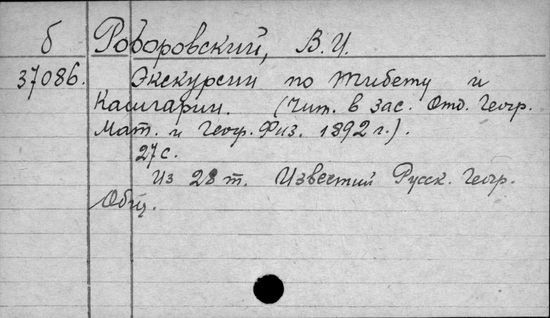 б Роборовский, В.И.
37086. Экскурсии по Тибету и
Кашгарии. (Чит. в зас. Отд. Геогр.
Мат. и Геогр. Физ. 1892 г.).
27 с.
Из 28 т. Известий Русск. Геогр.
Общ.